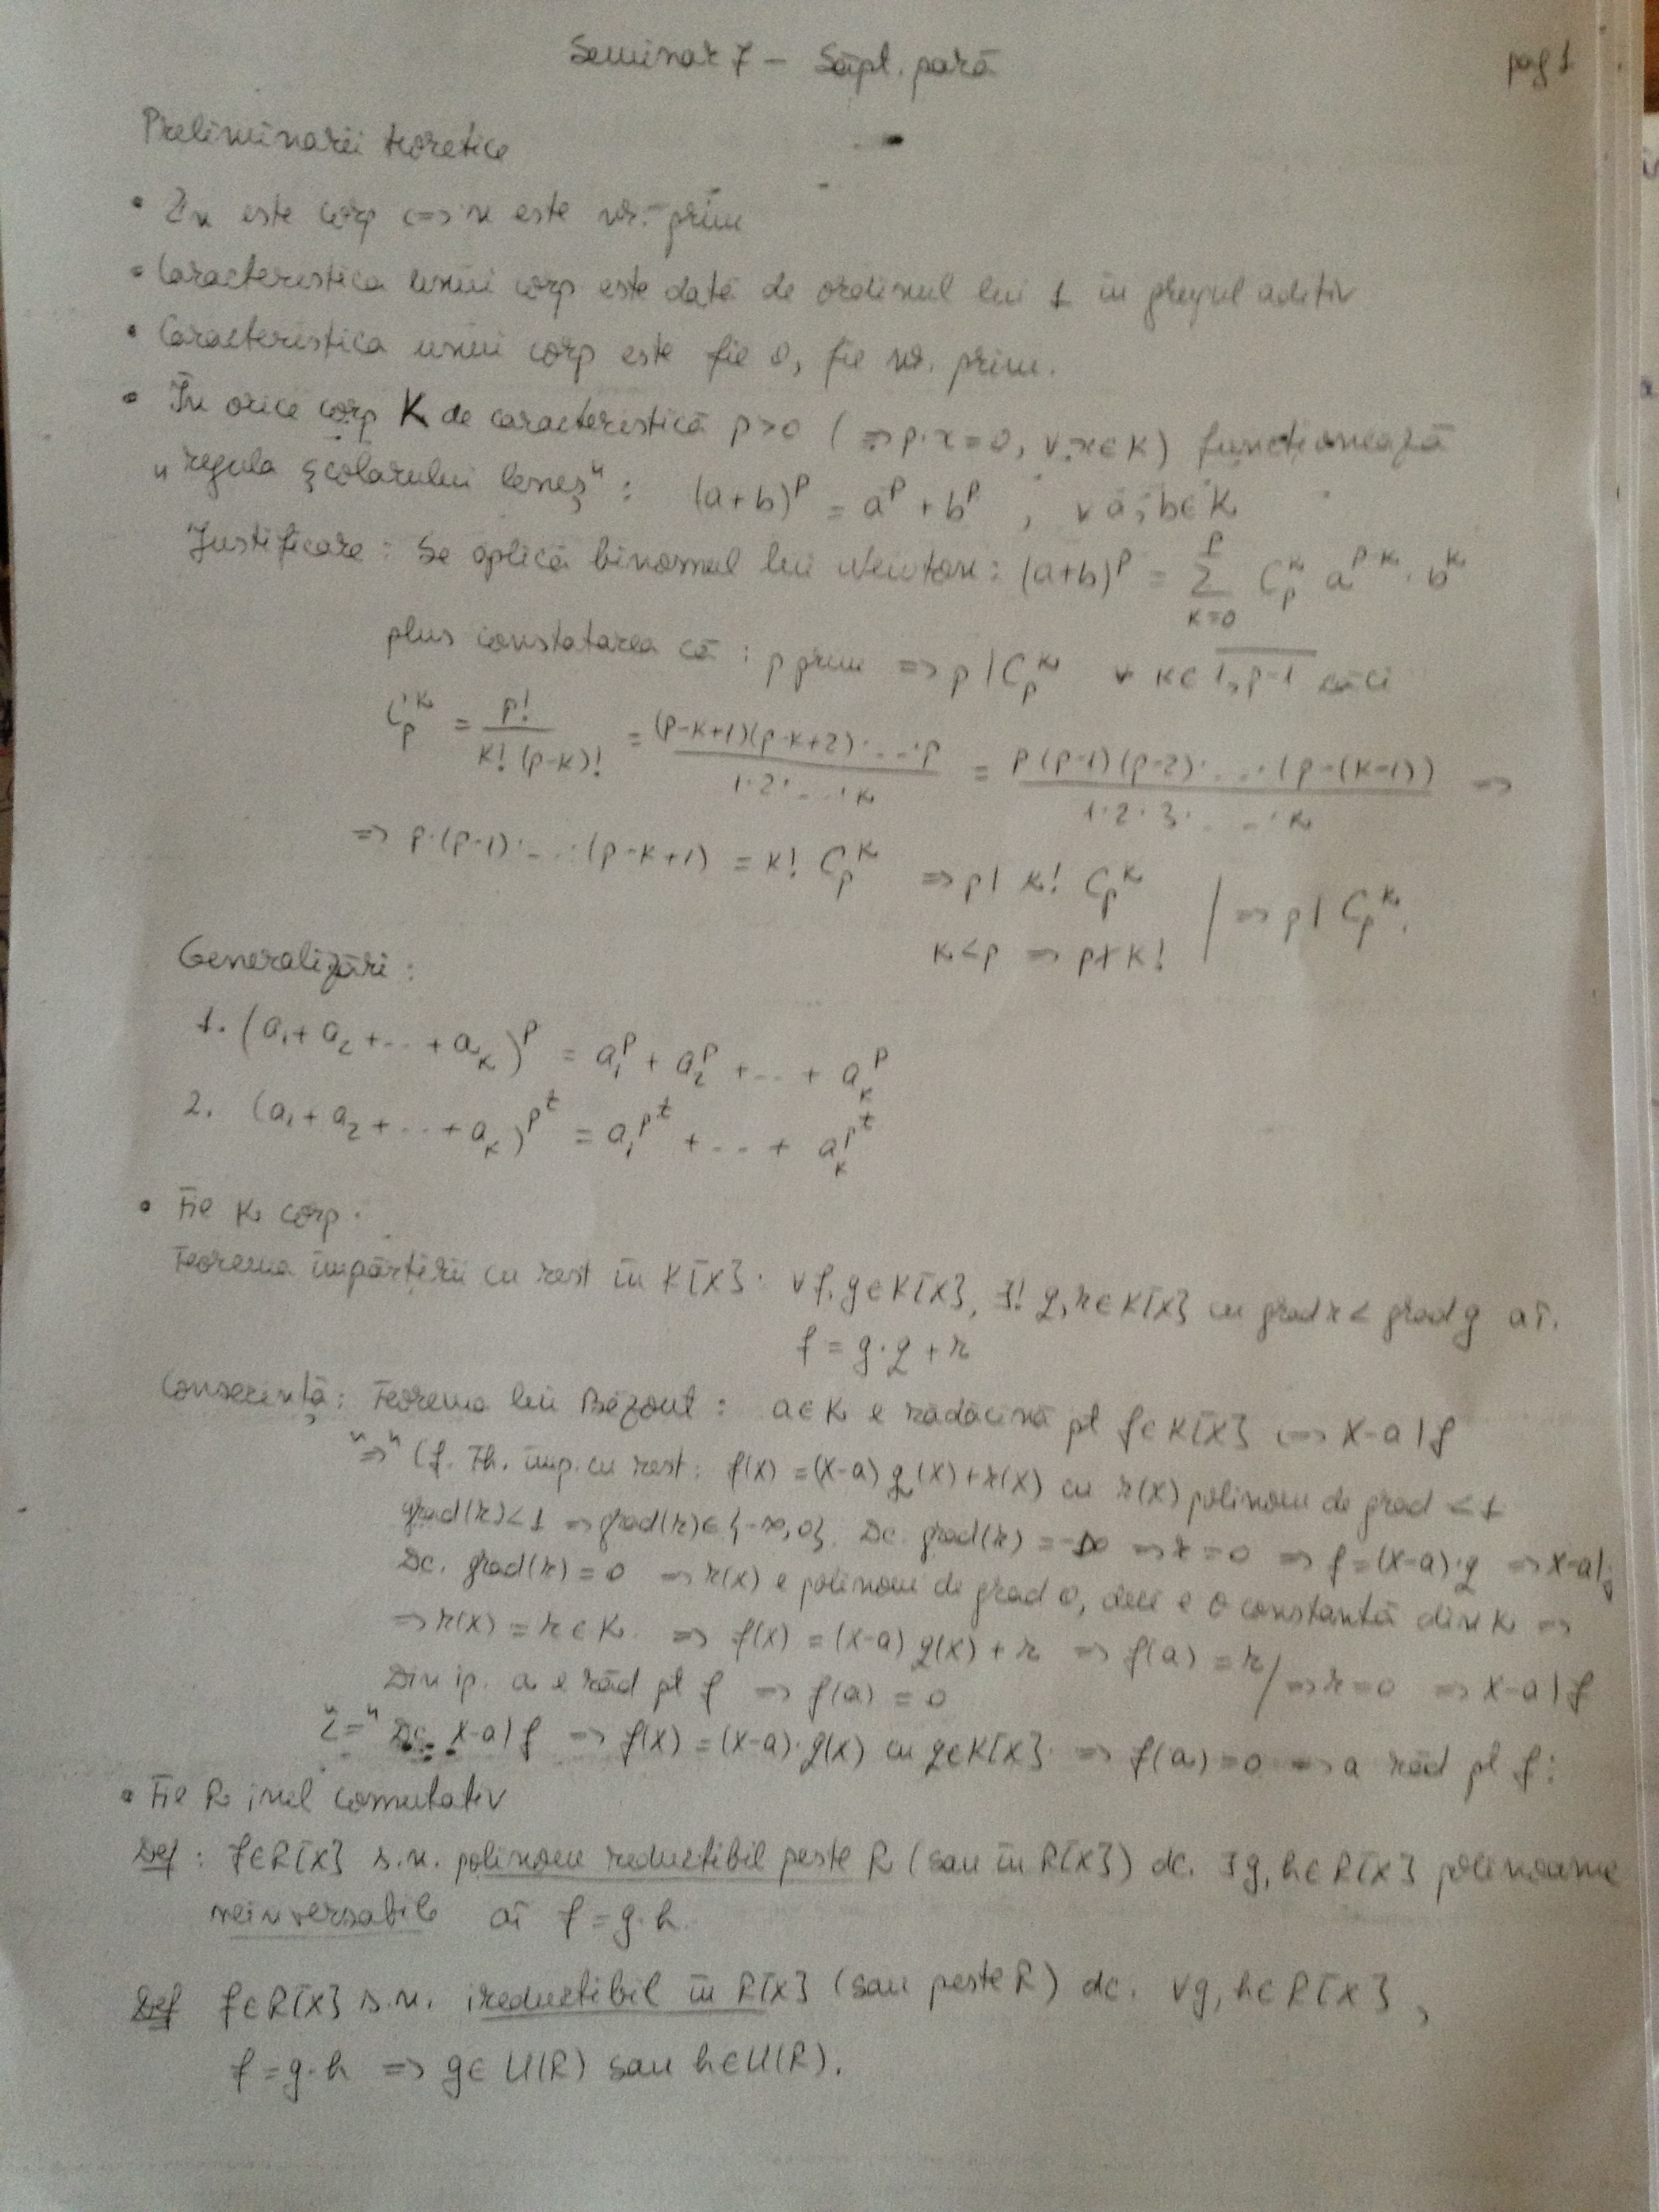 Seminar 7 – Săpt. pară
pag 1
Preliminarii teoretice
• Zn este corp <=> n este nr. prim
• Caracteristica unui corp este dată de ordinul lui 1 în grupul aditiv
• Caracteristica unui corp este fie 0, fie nr. prim.
• În orice corp K de caracteristică p>0 (=> p·x=0, ∀x∈K) funcționează
"regula școlarului leneș": (a+b)^p = a^p + b^p, ∀ a,b∈K
Justificare: Se aplică binomul lui Newton: (a+b)^p = Σ_{k=0}^{p} C_p^k a^{p-k}·b^k
plus constatarea că: p prim => p | C_p^k ∀ k∈\overline{1,p-1} căci
C_p^k = p!/(k!(p-k)!) = (p-k+1)(p-k+2)·...·p/(1·2·...·k) = p(p-1)(p-2)·...·(p-(k-1))/(1·2·3·...·k) =>
=> p·(p-1)·...·(p-k+1) = k! C_p^k => p | k! C_p^k
k<p => p∤k! | => p | C_p^k.
Generalizări:
1. (a₁+a₂+...+a_k)^p = a₁^p + a₂^p + ... + a_k^p
2. (a₁+a₂+...+a_k)^{p^t} = a₁^{p^t} + ... + a_k^{p^t}
• Fie K corp.
Teorema împărțirii cu rest în K[X]: ∀f,g∈K[X], ∃! q,r∈K[X] cu grad r < grad g aî.
f = g·q + r
Consecință: Teorema lui Bézout: a∈K e rădăcină pt f∈K[X] <=> X-a | f
"=>" Cf. Th. împ. cu rest: f(X) = (X-a) q(X) + r(X) cu r(X) polinom de grad < 1
grad(r)<1 => grad(r)∈{-∞,0}. Dc. grad(r) = -∞ => r=0 => f=(X-a)·q => X-a|f
Dc. grad(r) = 0 => r(X) e polinom de grad 0, deci e o constantă din K =>
=> r(X) = r∈K. => f(X) = (X-a) q(X) + r => f(a) = r
Din ip. a e răd pt f => f(a) = 0 | => r=0 => X-a | f
"<=" Dc. X-a | f => f(X) = (X-a)·q(X) cu q∈K[X] => f(a)=0 => a răd pt f.
• Fie R inel comutativ
Def: f∈R[X] s.n. polinom reductibil peste R (sau în R[X]) dc. ∃g,h∈R[X] polinoame
neinversabile aî f=g·h.
Def f∈R[X] s.n. ireductibil în R[X] (sau peste R) dc. ∀g,h∈R[X],
f=g·h => g∈U(R) sau h∈U(R).